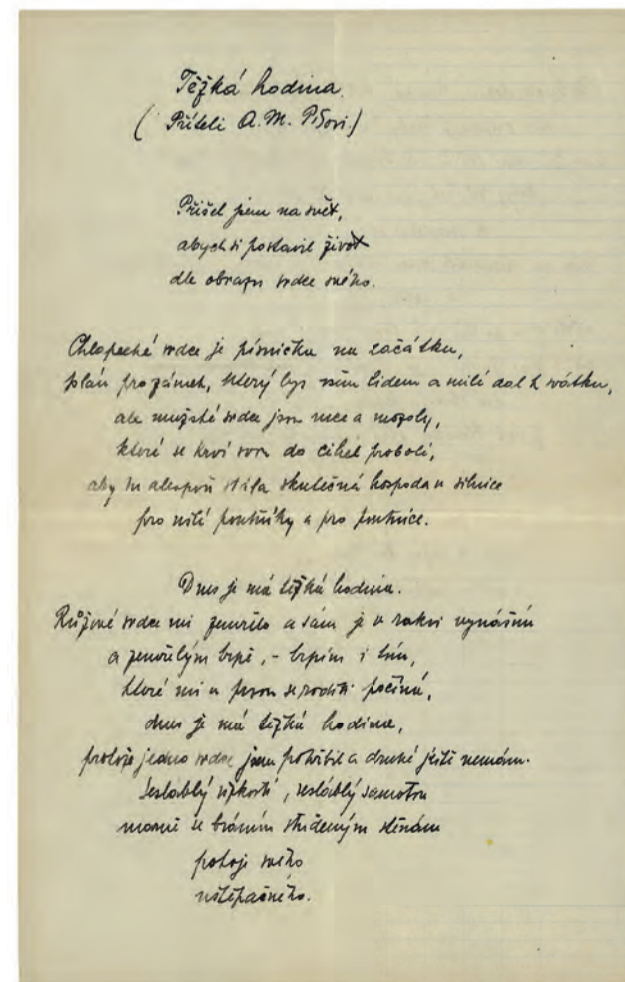 Těžká hodina.
(Příteli A. M. Píšovi)
Přišel jsem na svět,
abych si postavil život
dle obrazu srdce svého.
Chlapecké srdce je písnička na začátku,
plán pro zámek, který bys všem lidem a milé dal k svátku,
ale mužské srdce jsou ruce a mozoly,
které se krví svou do cihel probolí,
aby tu alespoň stála skutečná hospoda u silnice
pro milé poutníky a pro poutnice.
Dnes je má těžká hodina.
Růžové srdce mi zemřelo a sám je v rakvi vynáším
a zemřelým trpě, - trpím i tím,
které mi v prsou se roditi počíná,
dnes je má těžká hodina,
protože jedno srdce jsem pohřbil a druhé ještě nemám.
Zesláblý úzkostí, zesláblý samotou
marně se bráním studeným stěnám
pokoje svého
uštěpačného.